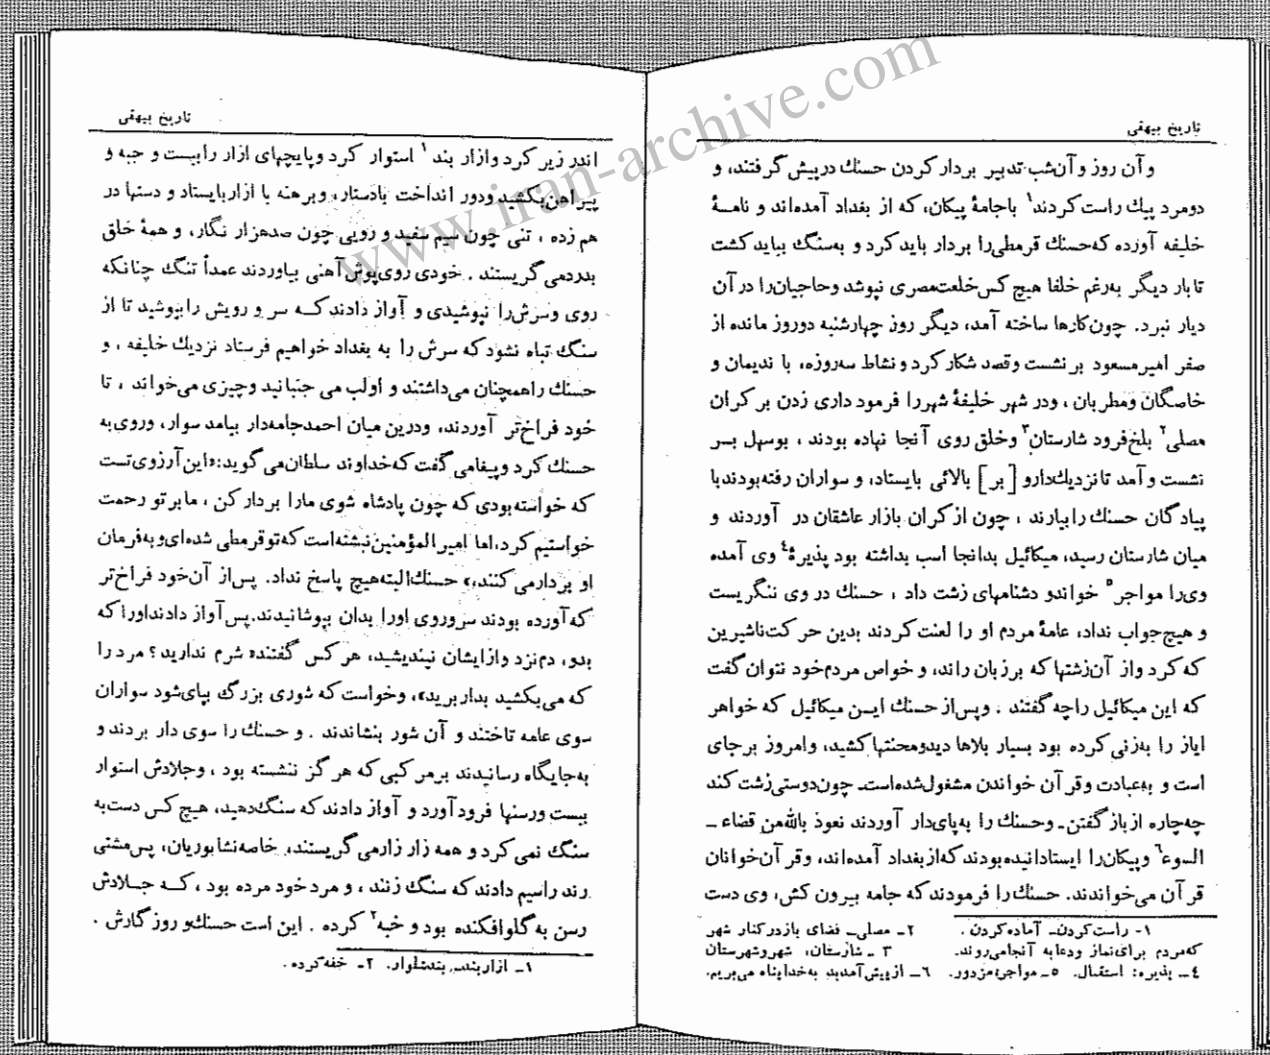 تاریخ بیهقی
و آن روز و آن‌شب تدبیر بردار کردن حسنك درپیش گرفتند، و
دومرد پیك راست کردند۱ باجامهٔ پیکان، که از بغداد آمده‌اند و نامـهٔ
خلیفه آورده که‌حسنك قرمطی‌را بردار باید کرد و به‌سنگ بباید کشت
تا بار دیگر به‌رغم خلفا هیچ کس‌خلعت‌مصری نپوشد وحاجیان‌را در آن
دیار نبرد. چون‌کارها ساخته آمد، دیگر روز چهارشنبه دوروز مانده از
صفر امیرمسعود برنشست وقصد شکار کرد و نشاط سه‌روزه، با ندیمان و
خاصگان ومطربان ، ودر شهر خلیفهٔ شهررا فرمود داری زدن بر کران
مصلی۲ بلخ‌فرود شارستان۳ وخلق روی آنجا نهاده بودند ، بوسهل بـر
نشست و آمد تا نزدیك‌دارو [ بر ] بالائی بایستاد، و سواران رفته‌بودند با
پیادگان حسنك را بیارند ، چون از کران بازار عاشقان در آوردند و
میان شارستان رسید، میکائیل بدانجا اسب بداشته بود پذیرهٔ۴ وی آمده
وی‌را مواجر۵ خواندو دشنامهای زشت داد ، حسنك در وی ننگریست
و هیچ‌جواب نداد، عامهٔ مردم او را لعنت کردند بدین حرکت‌ناشیرین
که کرد واز آن‌زشتها که برزبان راند، و خواص مردم‌خود نتوان گفت
که این میکائیل راچه گفتند . وپس‌از حسنك ایـن میکائیل که خواهر
ایاز را به‌زنی کرده بود بسیار بلاها دیدومحنتها کشید، وامروز برجای
است و به‌عبادت وقر آن خواندن مشغول‌شده‌است. چون‌دوستی‌زشت کند
چه‌چاره از باز گفتن ـ وحسنك را به‌پای‌دار آوردند نعوذ بالله‌من قضاء ـ
السوء۶ وپیکان‌را ایستادانیده‌بودند که‌از بغداد آمده‌اند، وقر آن‌خوانان
قر آن می‌خواندند. حسنك‌را فرمودند که جامه بیرون کش، وی دست
۱- راست‌کردن‌ـ آماده‌کردن . ۲ـ مصلی‌ـ فضای بازدرکنار شهر
که‌مردم برای‌نماز ودعا به آنجامی‌روند. ۳ ـ شارستان، شهروشهرستان
۴ـ پذیره: استقبال. ۵ـ مواجر: مزدور. ۶ـ ازپیش‌آمدبد به‌خداپناه می‌بریم.
تاریخ بیهقی
اندر زیر کرد وازار بند۱ استوار کرد و پایچهای ازار را ببست و جبه و
پیراهن‌بکشید ودور انداخت بادستار، وبرهنه با ازاربایستاد و دستها در
هم زده ، تنی چون سیم سفید و رویی چون صدهزار نگار، و همهٔ خلق
بدردمی گریستند . خودی روی‌پوش آهنی بیاوردند عمداً تنگ چنانکه
روی وسرش‌را نپوشیدی و آواز دادند کـه سر و رویش را بپوشید تا از
سنگ تباه نشود که سرش را به بغداد خواهیم فرستاد نزدیك خلیفه ، و
حسنك را همچنان می‌داشتند و اولب می جنبانید وچیزی می‌خواند ، تا
خود فراخ‌تر آوردند، ودرین میان احمدجامه‌دار بیامد سوار، وروی‌به
حسنك کرد و پیغامی گفت که خداوند سلطان‌می گوید: «این آرزوی‌تست
که خواسته‌بودی که چون پادشاه شوی مارا بردار کن ، ما بر تو رحمت
خواستیم کرد، اما امیرالمؤمنین‌نبشته‌است که‌توقرمطی شده‌ای و به‌فرمان
او بردارمی کنند،» حسنك‌البته‌هیچ پاسخ نداد. پس‌از آن‌خود فراخ‌تر
که آورده بودند سروروی اورا بدان بپوشانیدند. پس آواز دادنداورا که
بدو، دم‌نزد وازایشان نیندیشید، هر کس گفتند« شرم ندارید؟ مرد را
که می‌بکشید بداربرید»، وخواست که شوری بزرگ بپای‌شود سواران
سوی عامه تاختند و آن شور بنشاندند . و حسنك را سوی دار بردند و
به‌جایگاه رسانیدند برمر کبی که هر گز ننشسته بود ، وجلادش استوار
ببست ورسنها فرودآورد و آواز دادند که سنگ‌دهید، هیچ کس دست‌به
سنگ نمی کرد و همه زار زارمی گریستند، خاصه‌نشابوریان، پس‌مشتی
رند راسیم دادند که سنگ زنند ، و مرد خود مرده بود ، کـه جـلادش
رسن به‌گلو افکنده بود و خبه۲ کرده . این است حسنك‌و روز گارش .
۱ـ ازاربند، بندشلوار. ۲ـ خفه‌کرده .
www.iran-archive.com